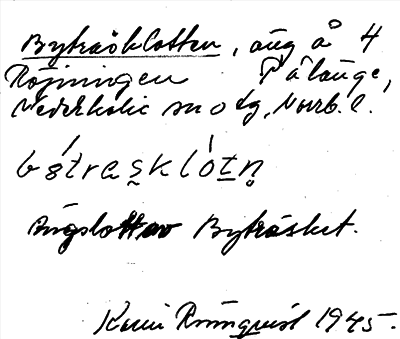 Byträsklotten, äng å 4
Röjningen Pålänge,
Nederkalix sn o tg, Norrb. l.
bỳtraskló́tn̥
Ängslott av Byträsket.
Karin Rönnqvist 1945.